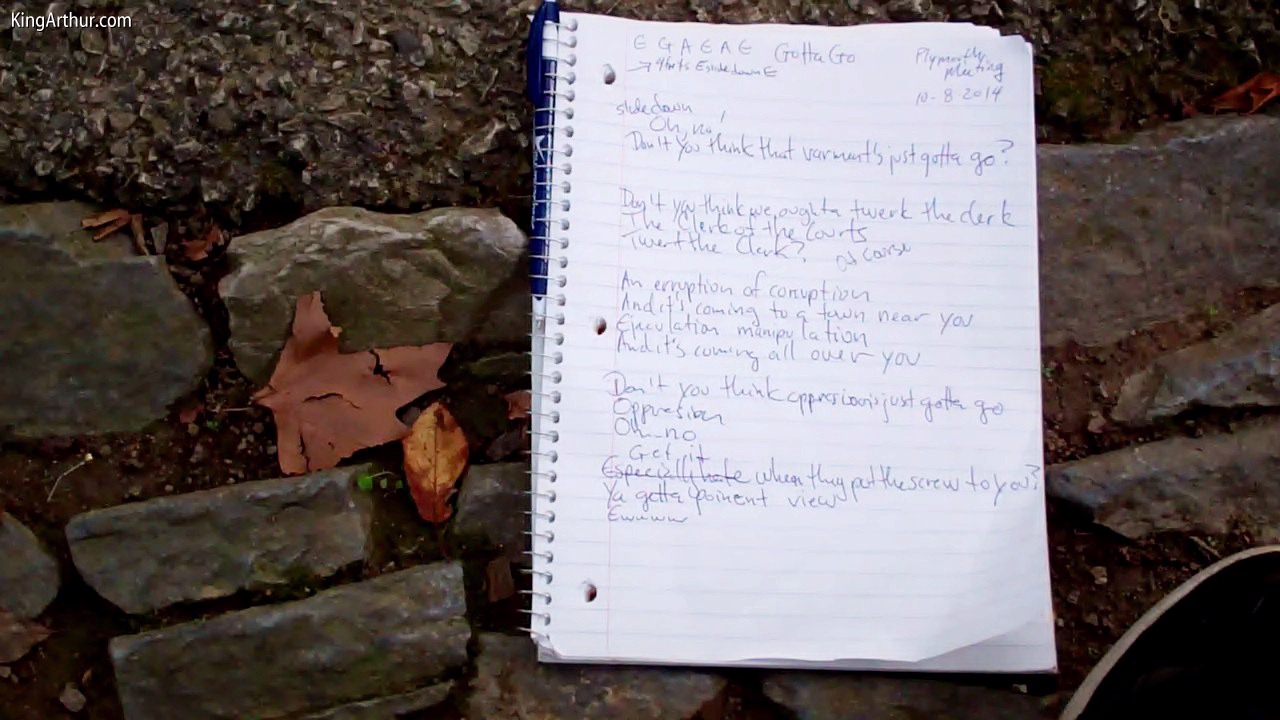 KingArthur.com
E G A E A E Gotta Go
→ 4 frets E slide down E
Plymouth
Meeting
10-8 2014
slide down
Oh, no!
Don't You think that varment's just gotta go?
Don't you think we oughta twerk the clerk
The Clerk of the Courts
Twerk the Clerk? of course
An erruption of corruption
And it's coming to a town near you
Ejaculation manipulation
And it's coming all over you
Don't you think oppression's just gotta go
Oppression
Oh no
Get it
Especially hate when they put the screw to you?
Ya gotta poinent view
Ewwww